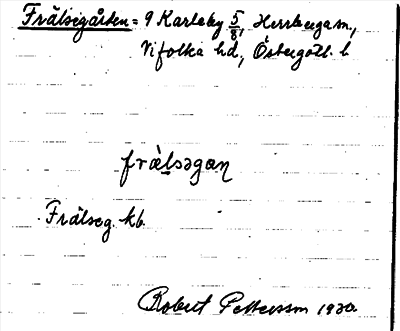 Frälsegården = 9 Karleby 5/8, Herrberga sn,
Vifolka hd, Östergötl. l.
frälsəgαṇ
Frälseg. kb.
Robert Pettersson 1930.